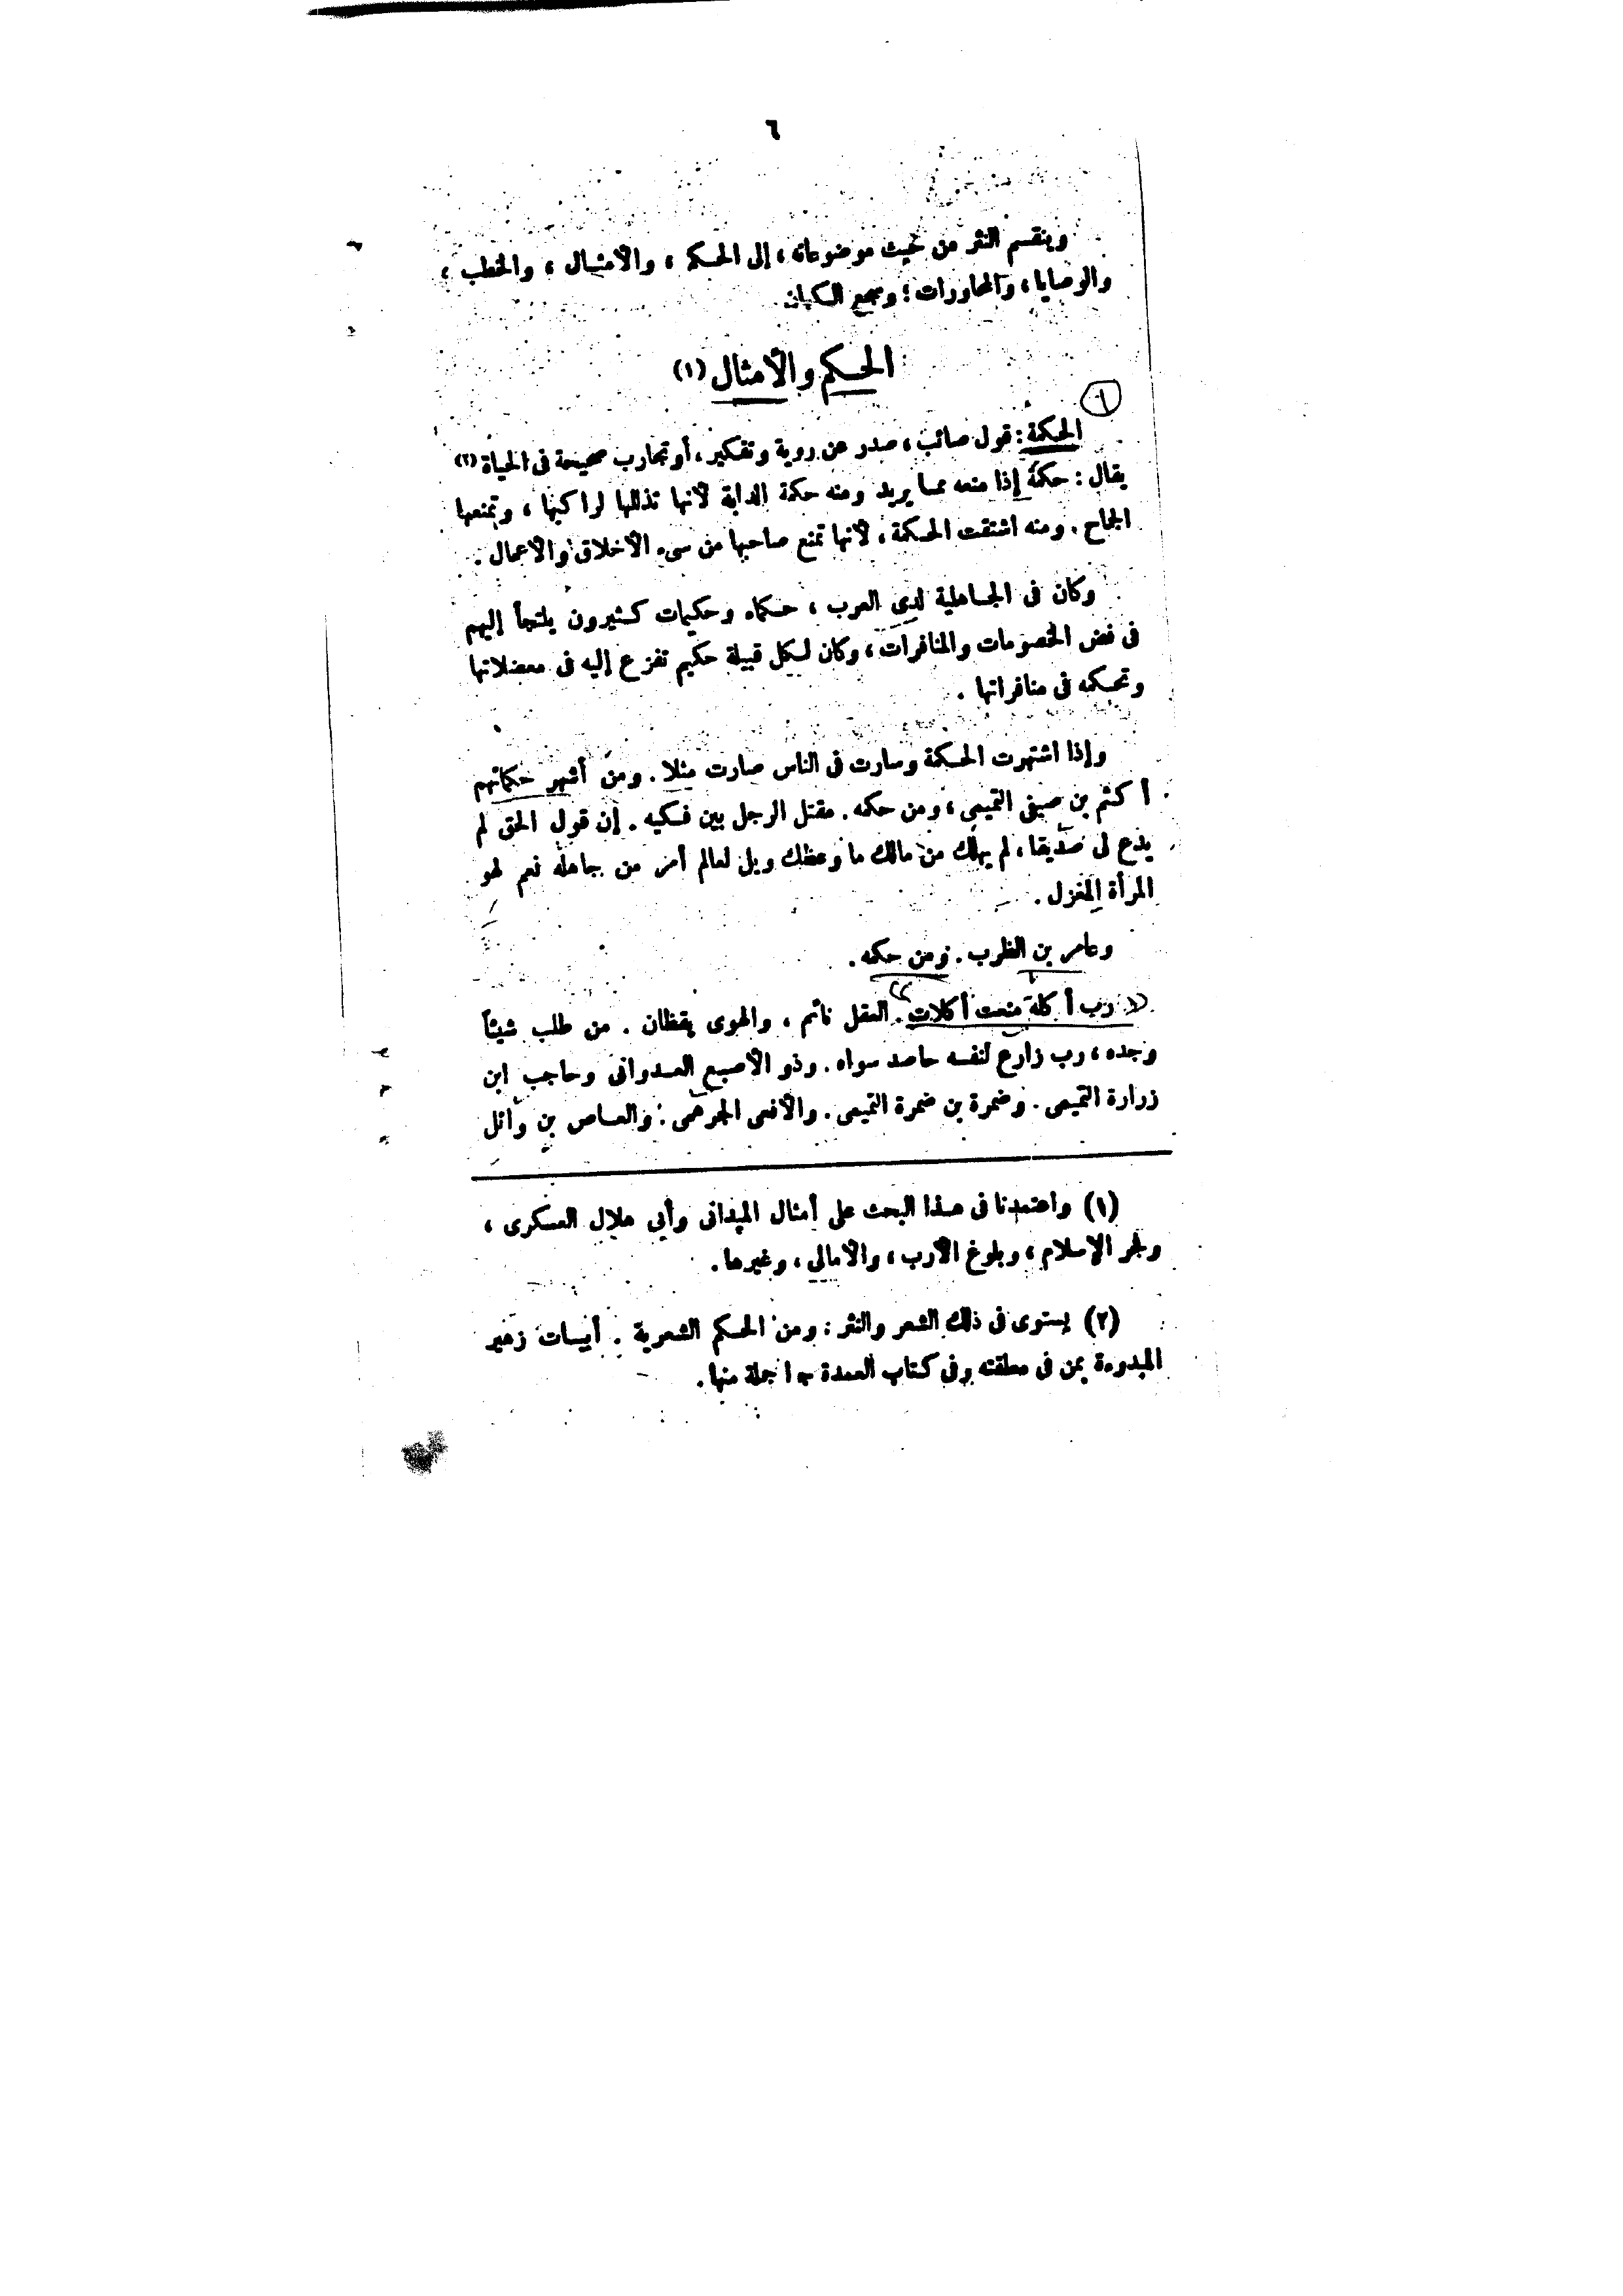 ٦
وينقسم النثر من حيث موضوعاته، إلى الحكم، والأمثال، والخطب،
والوصايا، والمحاورات؛ وسجع الكهان.
الحكم والأمثال (١)
الحكمة: قول صائب، صدر عن روية وتفكير، أو تجارب صحيحة فى الحياة (٢)
يقال: حكمة إذا منعه مما يريد ومنه حكمة الدابة لأنها تذللها لراكبها، وتمنعها
الجماح. ومنه اشتقت الحكمة، لأنها تمنع صاحبها من سىء الأخلاق والأعمال.
وكان فى الجاهلية لدى العرب، حكماء وحكيمات كثيرون يلتجأ إليهم
فى فض الخصومات والمنافرات، وكان لكل قبيلة حكيم تفزع إليه فى معضلاتها
وتحكمه فى منافراتها.
وإذا اشتهرت الحكمة وسارت فى الناس صارت مثلا. ومن أشهر حكمائهم
أكثم بن صيفى التميمى، ومن حكمه. مقتل الرجل بين فكيه. إن قول الحق لم
يدع لى صديقا، لم يهلك من مالك ما وعظك ويل لعالم أمر من جاهله نعم لهو
المرأة المغزل.
وعامر بن الظرب. ومن حكمه.
رب أكلة منعت أكلات. العقل نائم، والهوى يقظان. من طلب شيئاً
وجده، رب زارع لنفسه حاصد سواه. وذو الأصبع العدوانى وحاجب ابن
زرارة التميمى. وضمرة بن ضمرة التميمى. والأفعى الجرهمى. والعاص بن وائل
(١) واعتمدنا فى هذا البحث على أمثال الميدانى وأبى هلال العسكرى،
وفجر الإسلام، وبلوغ الأرب، والأمالى، وغيرها.
(٢) يستوى فى ذلك الشعر والنثر: ومن الحكم الشعرية. أبيات زهير
المبدوءة بمن فى معلقته وفى كتاب العمدة ج ١ جملة منها.